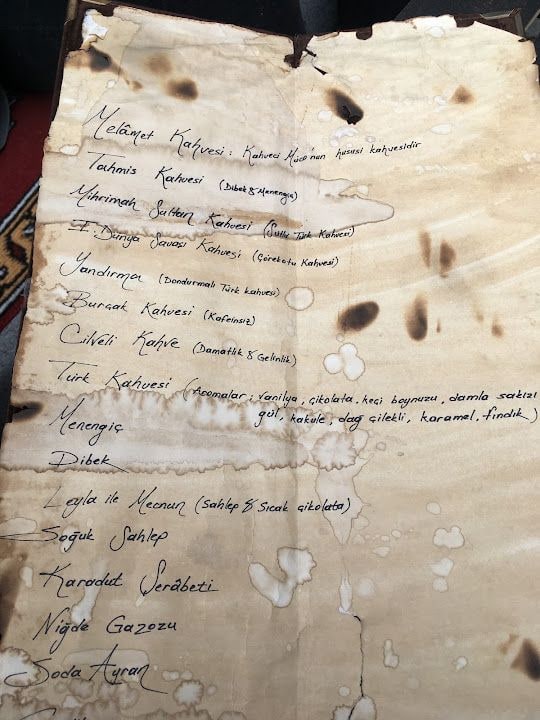 Melâmet Kahvesi : Kahveci Müco'nun hususi kahvesidir
Tahmis Kahvesi (Dibek & Menengiç)
Mihrimah Sultan Kahvesi (Sütlü Türk Kahvesi)
I. Dünya Savaşı Kahvesi (Çörekotu Kahvesi)
Yandırma (Dondurmalı Türk kahvesi)
Burçak Kahvesi (Kafeinsiz)
Cilveli Kahve (Damatlık & Gelinlik)
Türk Kahvesi (Aromalar; vanilya, çikolata, keçi boynuzu, damla sakızı
gül, kakule, dağ çilekli, karamel, fındık)
Menengiç
Dibek
Leyla ile Mecnun (Sahlep & Sıcak çikolata)
Soğuk Sahlep
Karadut Şerâbeti
Niğde Gazozu
Soda Ayran